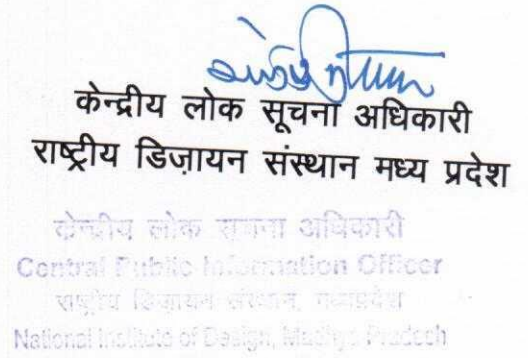 केन्द्रीय लोक सूचना अधिकारी
राष्ट्रीय डिज़ायन संस्थान मध्य प्रदेश
केन्द्रीय लोक सूचना अधिकारी
Central Public Information Officer
राष्ट्रीय डिज़ायन संस्थान, मध्यप्रदेश
National Institute of Design, Madhya Pradesh